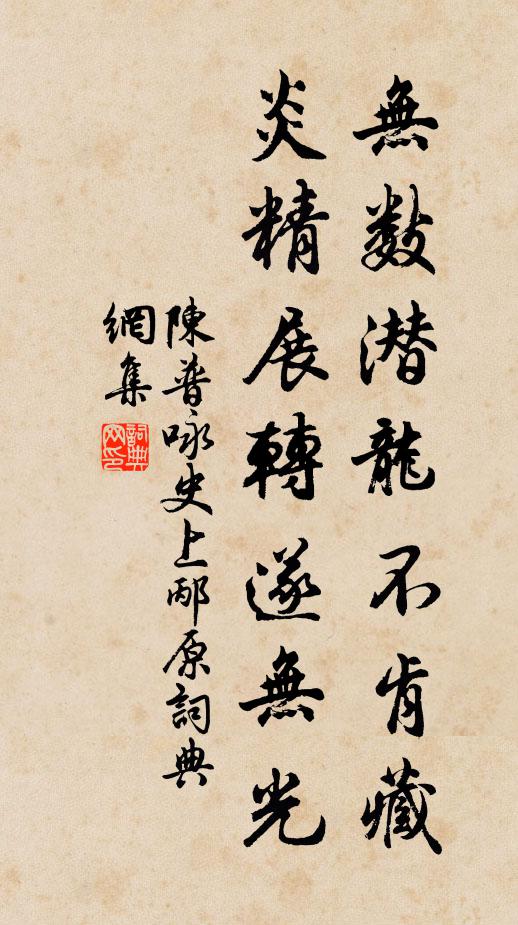 無數潛龍不肯藏
炎精展轉遂無光
陳普咏史上邴原詞典
網集
詞典網印